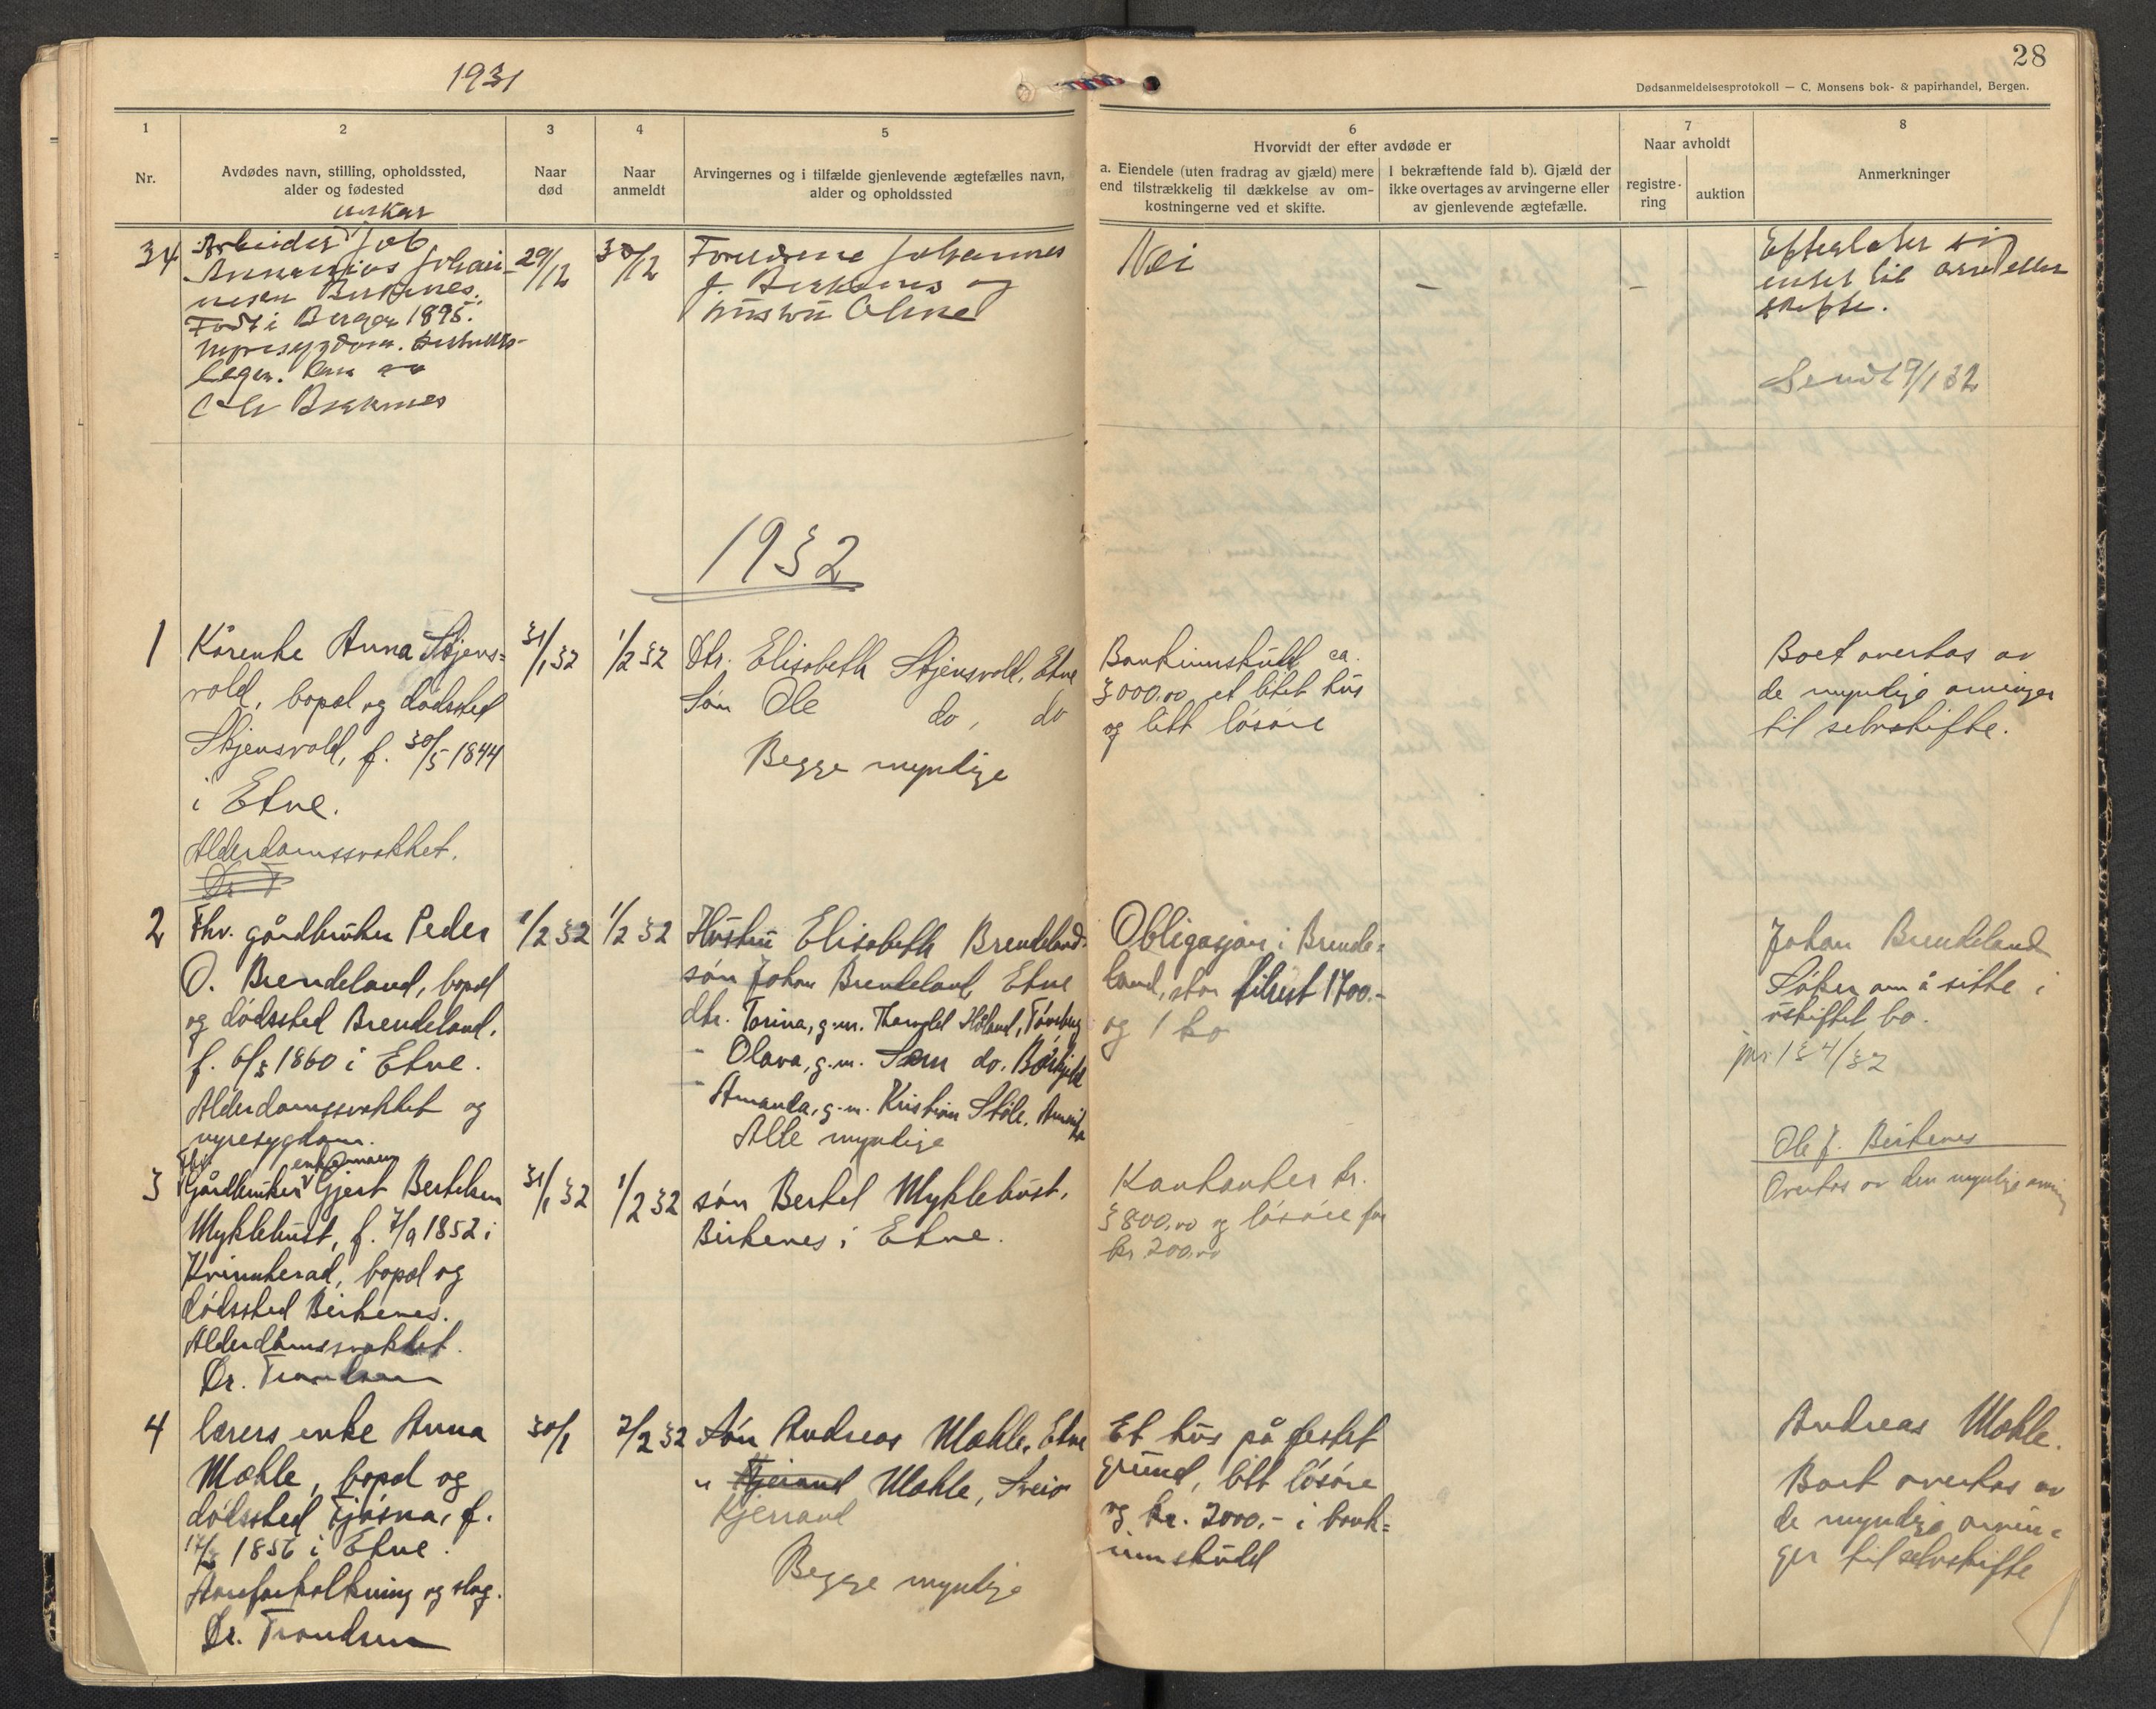 28
1931
Dødsanmeldelsesprotokoll — C. Monsens bok- & papirhandel, Bergen.
1
2
3
4
5
6
7
8
Nr.
Avdødes navn, stilling, opholdssted,
alder og fødested
Naar
død
Naar
anmeldt
Arvingernes og i tilfælde gjenlevende ægtefælles navn,
alder og opholdssted
Hvorvidt der efter avdøde er
a. Eiendele (uten fradrag av gjæld) mere
end tilstrækkelig til dækkelse av om-
kostningerne ved et skifte.
I bekræftende fald b). Gjæld der
ikke overtages av arvingerne eller
av gjenlevende ægtefælle.
Naar avholdt
registre-
ring
auktion
Anmerkninger
34
ungkar
Arbeider Job
Annanius Johan-
nesen Birkenes.
Født i Bergen 1895.
Nyresygdom.
legen.
Ole Birkenes
29/12
30/12
Foreldrene Johannes
J. Birkenes og
hustru Oline
Nei
—
—
Efterlater sig
intet til arv eller
skifte.
Sendt 9/1 32
1932
1
Kårenke Anna Skjens=
vold, bopel og dødssted
Skjensvold, f. 30/5 1844
i Etne.
Alderdomssvakhet.
Dr T
31/1 32
1/2 32
Dtr. Elisabeth Skjensvold, Etne
Søn Ole do, do
Begge myndige
Bankinnskudd ca.
3000,00, et litet hus
og litt løsøre
Boet overtas av
de myndige arvinger
til selvskifte.
2
Fhv. gårdbruker Peder
O. Brendeland, bopel
og dødssted Brendeland,
f. 6/3 1860 i Etne.
Alderdomssvakhet og
nyresygdom.
1/2 32
1/2 32
Hustru Elisabeth Brendeland
søn Johan Brendeland, Etne
dtr. Torina, g.m. Thorvald Håland,
- Olava, g.m. Sam do.
- Amanda, g.m. Kristian Støle, Amerika
Alle myndige
Obligasjon i Brende=
land, stor tilrest 1700.-
og 1 ko
Johan Brendeland
Søker om å sitte i
uskiftet bo.
jnr 134/32
3
Fhv
enkemann
Gårdbruker Gjert Bertelsen
Myklebust, f. 7/9 1852 i
Kvinnherad, bopel og
dødssted Birkenes.
Alderdomssvakhet.
Dr. Trondsen
31/1 32
1/2 32
søn Bertel Myklebust,
Birkenes i Etne.
Kontanter kr.
3800,00 og løsøre for
kr 200,00
Ole J. Birkenes
Overtas av den myndige arving
4
lærers enke Anna
Mæhle, bopel og
dødssted Tjøsna, f.
17/3 1856 i Etne.
Åreforkalkning og slag.
Dr. Trondsen
30/1
2/2 32
Søn Andreas Mæhle, Etne
" Kjerand Mæhle, Sveio
Kjerrand
Begge myndige
Et hus på festet
grund, litt løsøre
og kr. 2000.- i bank=
innskudd
Andreas Mæhle.
Boet overtas av
de myndige arvin=
ger til selvskifte